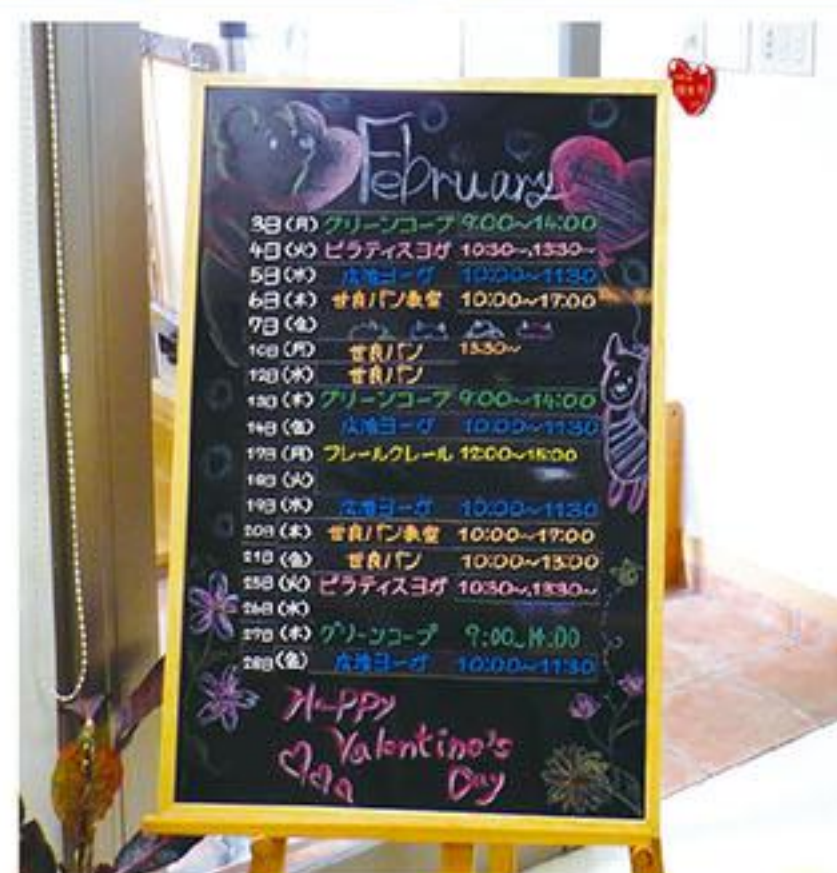 February
3日(月) グリーンコープ 9:00~14:00
4日(火) ピラティスヨガ 10:30~,13:30~
5日(水) ヨーガ 10:00~11:30
6日(木) 世良パン教室 10:00~17:00
7日(金)
10日(月) 世良パン 13:30~
12日(水) 世良パン
13日(木) グリーンコープ 9:00~14:00
14日(金) ヨーガ 10:00~11:30
17日(月) フレールクレール 12:00~15:00
18日(火)
19日(水) ヨーガ 10:00~11:30
20日(木) 世良パン教室 10:00~17:00
21日(金) 世良パン 10:00~13:00
25日(火) ピラティスヨガ 10:30~,13:30~
26日(水)
27日(木) グリーンコープ 9:00~14:00
28日(金) ヨーガ 10:00~11:30
Happy
Valentine's
Day